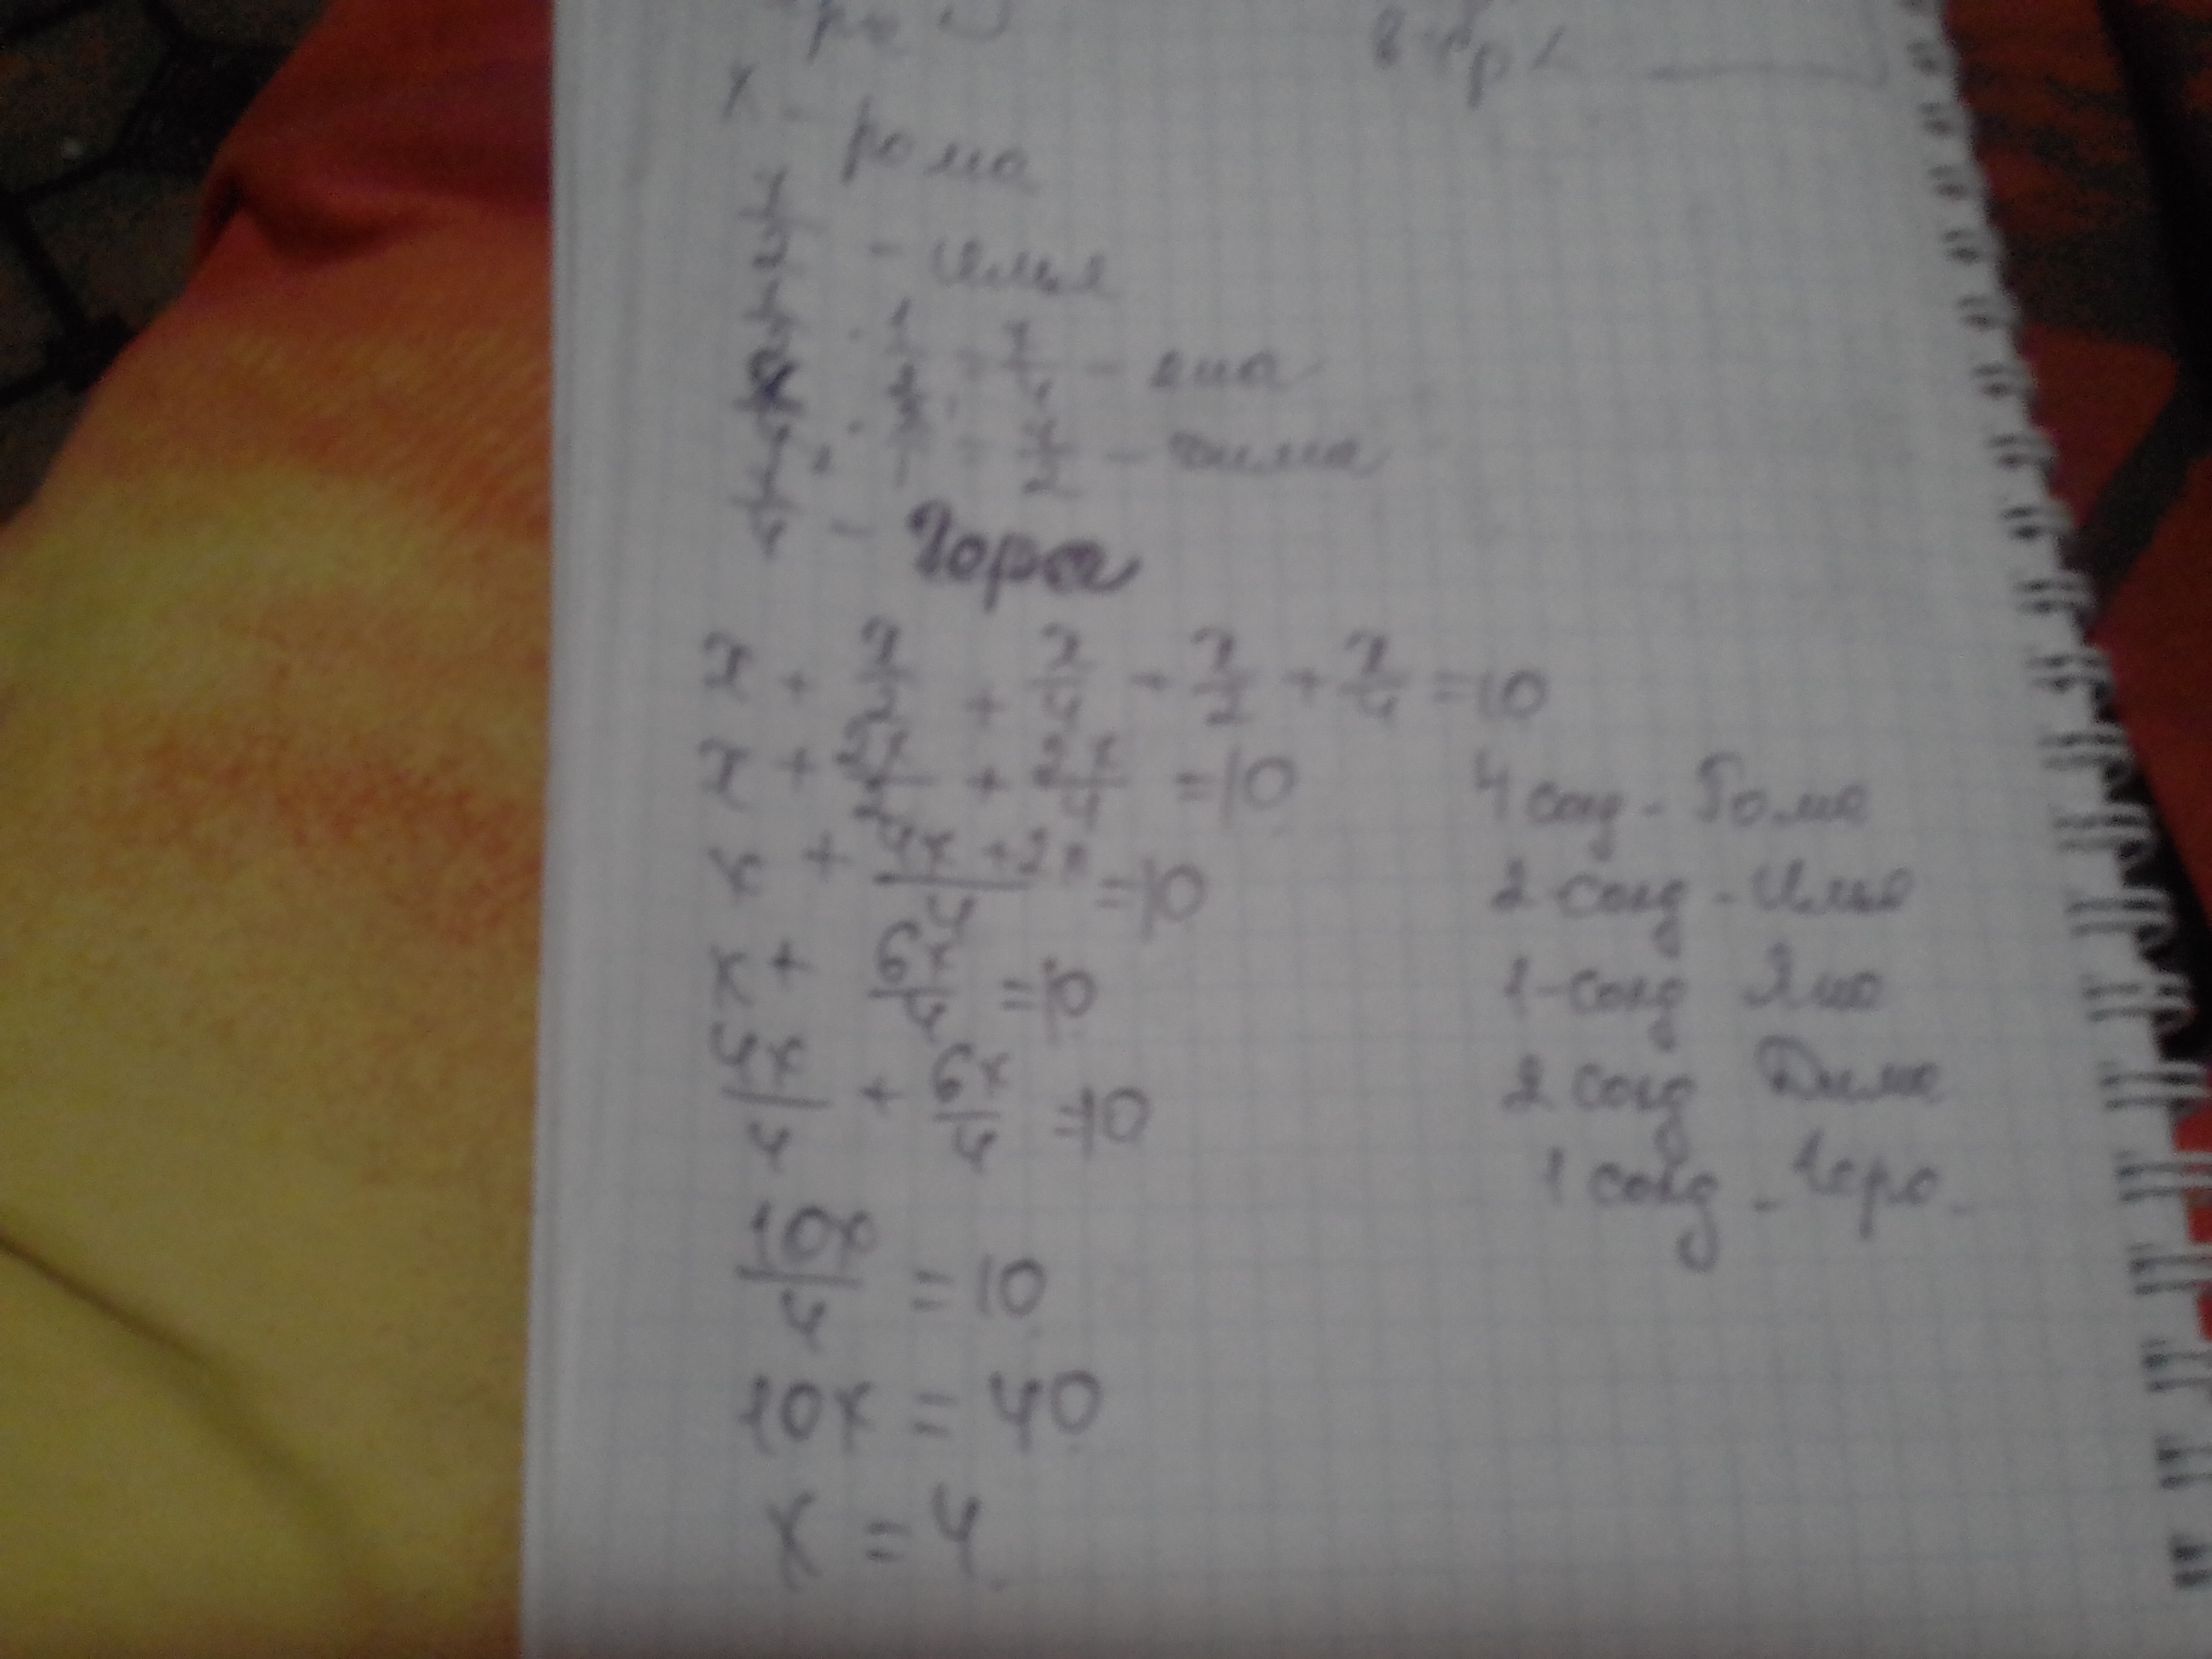 x - рома
x/2 - илья
x/2 · 1/2 = x/4 - яша
x/4 · 2/1 = x/2 - дима
x/4 - Гера
x + x/2 + x/4 + x/2 + x/4 = 10
x + 2x/2 + 2x/4 = 10
x + (4x + 2x)/4 = 10
x + 6x/4 = 10
4x/4 + 6x/4 = 10
10x/4 = 10
10x = 40
x = 4
4 солд - Рома
2 солд - Илья
1 - солд Яша
2 солд Дима
1 солд - Гера